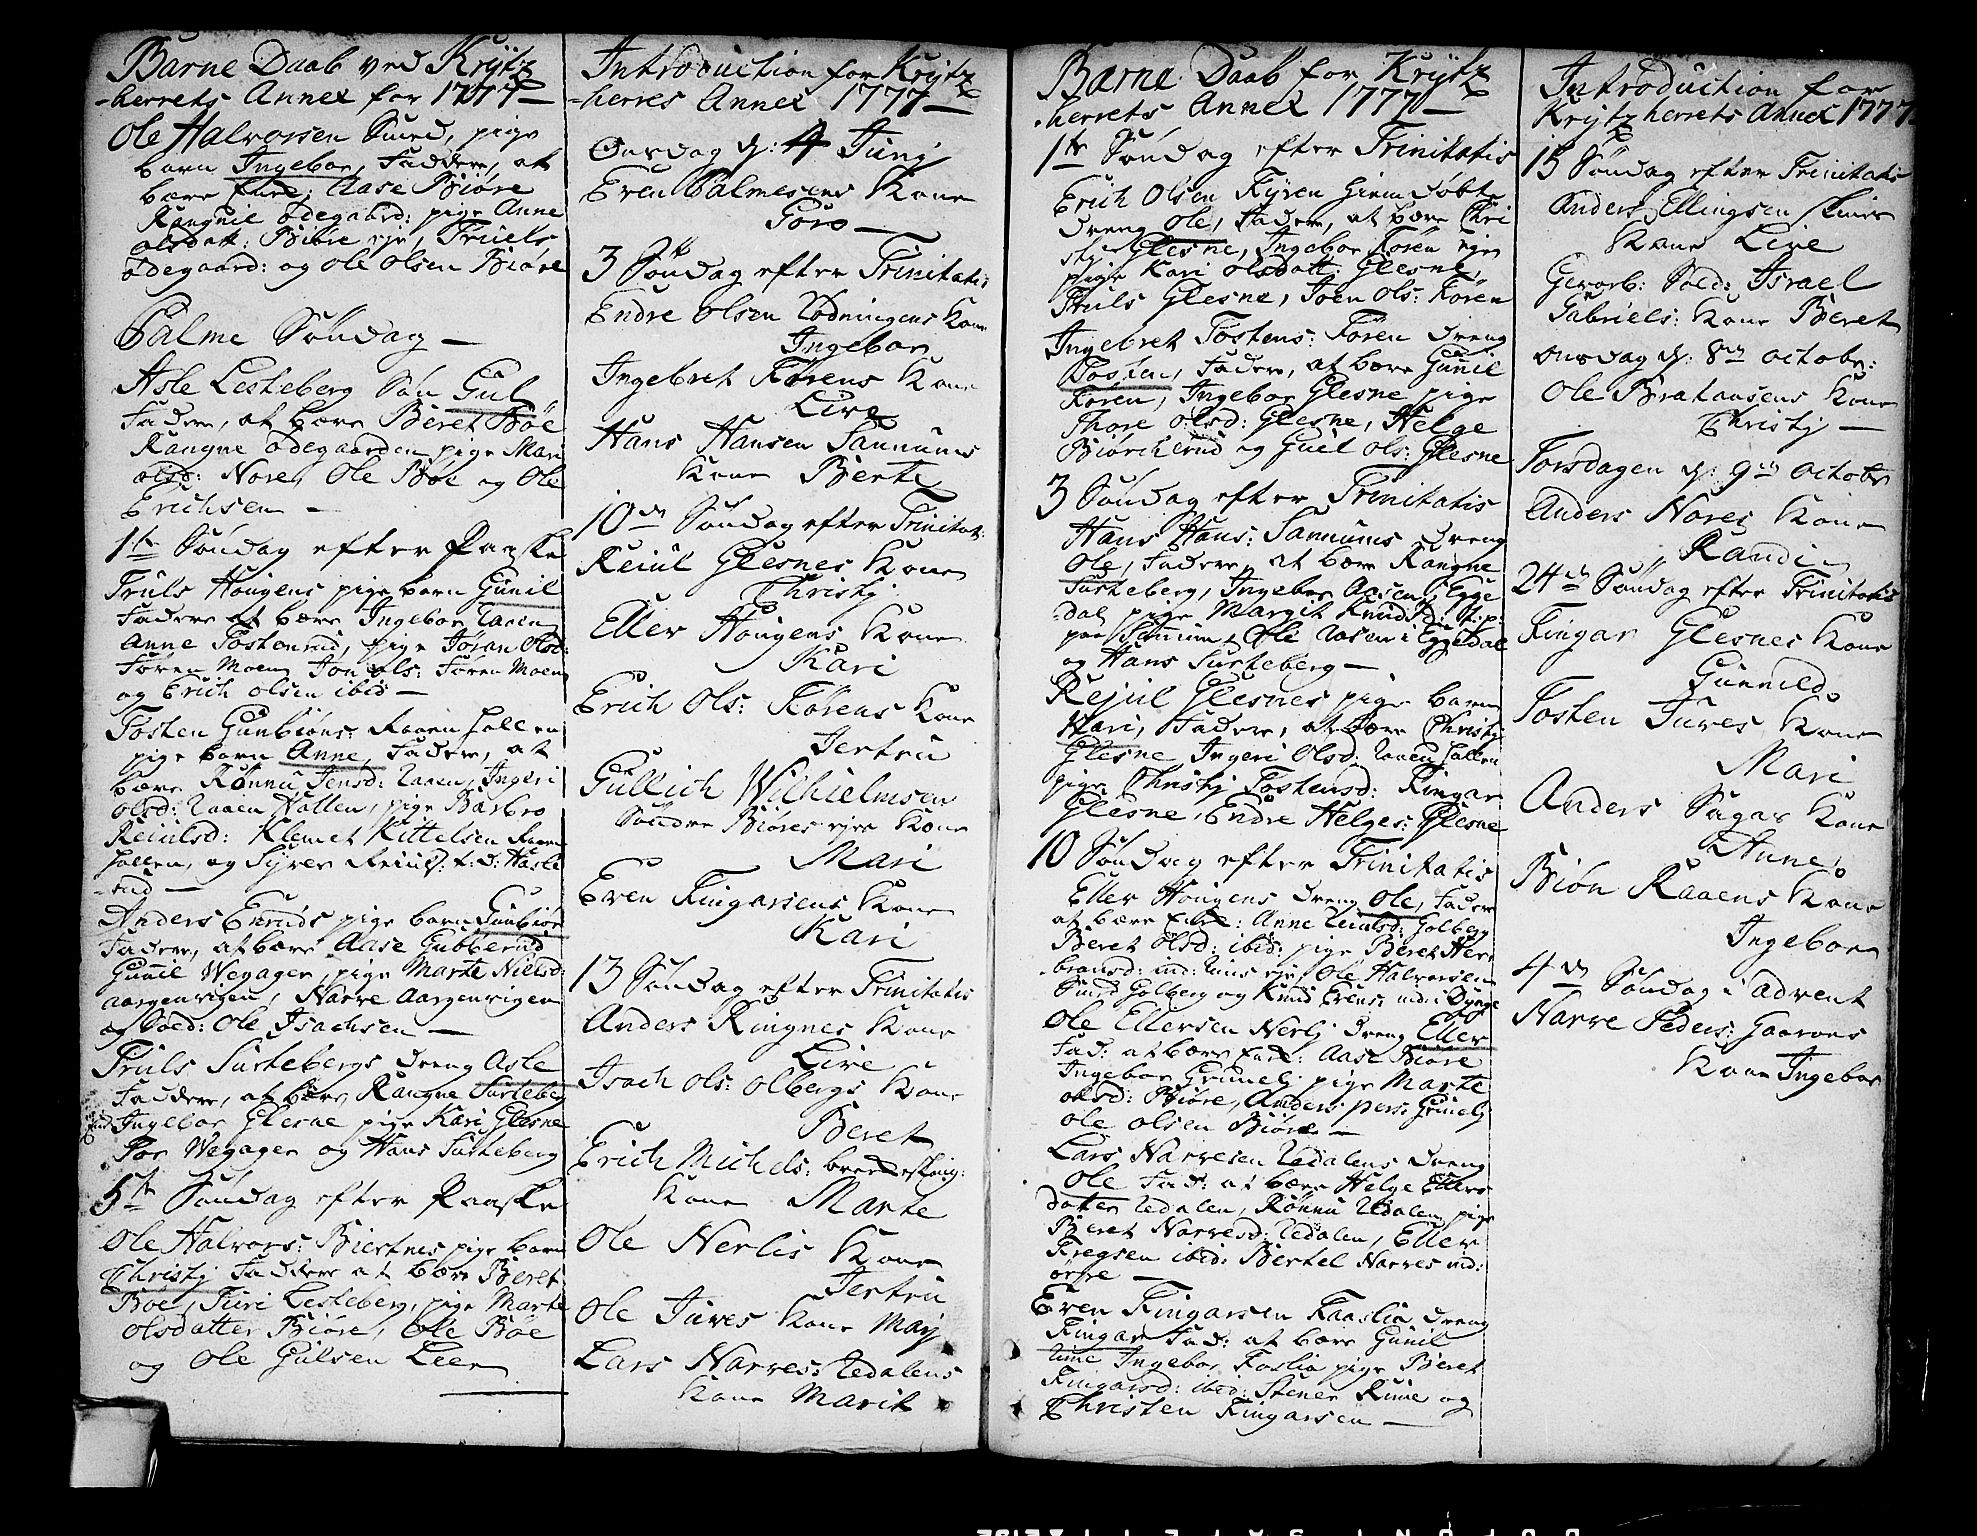 Barne Daab ved Krÿtz
-herrets Annex for 1777 —
Ole Halvorsen Smed, pige
barn Ingebor, Faddere, at
bære Aase Biøre
Rangnil ødegaard: pige Anne
olsdatt: Biøre eje, Truels
ødegaard: og ole olsen Biøre
Palme Søndag —
Asle Lesteberg Søn Gul
Faddere, at bære Beret Bøe
Rangne ødegaarden pige Mari
olsd: Nore, Ole Bøe og Ole
Erichsen —
1te Søndag efter Paaske
Truls Hougens pige barn Gunil
Faddere at bære Ingebor Raaen
Anne Tostenrud, pige Jøran Olsd:
Føren Moen Jon ols: Føren Moen
og Erich olsen ibid —
Tosten Gunbiøns: Raaenhallen
pige barn Anne, Faddere, at
bære Rønnu Jensd: Raaen, Ingeri
olsd: Raaen Hallen, pige Barbro
Reiulsd: Klemet Kittelsen Raaen
hallen, og Syver Reiuls: t:d: Hasle
-rud —
Anders Enruds pige barn Gunbiør
Faddere, at bære Aase Gubberud
Gunil Wegager, pige Marte Nielsd:
aargenvigen, Narve Aargenvigen
og Sold: Ole Isachsen —
Truls Surtebergs dreng Asle
Faddere, at bære Rangne Surteberg
Ingebor Glesne pige Kari Glesne
Por Wegager og Hans Surteberg
5te Søndag efter Paaske
Ole Halvors: Biertnes pige barn
Christj Faddere at bære Beret
Bøe, Turi Lesteberg, pige Marte
olsdatter Biøre, Ole Bøe
og Ole Gulsen Leer
Introduction for Krÿtz
-herres Annex 1777 —
Onsdag d: 4 Junj
Even Palmesens Kone
Goro —
3 Søndag efter Trinitatis
Endre olsen Rødningens Kone
Ingebor
Ingebret Førens Kone
Live
Hans Hansen Sannums
Kone Berte
10de Søndag efter Trinitat:
Reiul Glesnes Kone
Christj
Eller Hougens Kone
Kari
Erich Ols: Førens Kone
Jertru
Gullich Wilhielmsen
Søndre Biøres eje Kone
Mari
Even Fingarsens Kone
Kari
13 Søndag efter Trinitatis
Anders Ringnes Kone
Live
Isach ols: olbergs Kone
Beret
Erich Michels:
Kone Marte
Ole Nerlis Kone
Jertru
Ole Tures Kone Marj
Lars Narves: Redalens
Kone Marit
Barne Daab for Krÿtz
-herrets Annex 1777 —
1te Søndag efter Trinitatis
Erich Olsen Føren hiemdøbte
dreng Ole, Fadere, at bære Chri
stj Glesne, Ingebor Føren ejes
pige Kari olsdatt: Glesne,
Truls Glesne, Joen Ols: Føren
Ingebret Tostens: Føren dreng
Tosten, Fadere, at bære Gunil
Føren, Ingebor Glesne pige
Thore olsd: Glesne, Helge
Biørcherud og Guel ols: Glesne
3 Søndag efter Trinitatis
Hans Hans: Sannums dreng
Ole, Fadere, at bære Rangne
Surteberg, Ingebor Aasen i Egge
-dal pige Margit Knudsd:
paa Sannum, Ole Aasen i Eggedal
og Hans Surteberg —
Rejul Glesnes pige barn
Kari, Fadere, at bære Christj
Glesne Ingeri Olsd: Raaen hallen
pige Christj Tostensd: Fingar
Glesne, Endre Helges: Glesne
10 Søndag efter Trinitatis
Eller Hougens dreng Ole, Fadere
at bære Anne Reiulsd: Golberg
Beret olsd: ibid: pige Beret Her
bransd: ind: eje, Ole Halvorsen
Smed Golberg og Knud Evens: ind:
Ole Ellersen Nerlj dreng Eller
Fad: at bære Aase Biøre
Ingebor Grimelj pige Marte
olsd: Biøre, Anders pers: Grimelj
ole olsen Biøre —
Lars Narvesen Redalens dreng
Ole Fad: at bære Helge Ellers
datter Redalen, Rønnu Redalen pige
Beret Narvesd: Redalen, Eller
Fregsen ibid: Bertel Narves: ind:
Even Fingarsen Faaslia dreng
Fingar Fad: at bære Gunil
Rime Ingebor Foslia pige Beret
Fingarsd: ibid: Stener Rime og
Christen Fingarsen —
Introduction for
Krÿtzherrets Annex 1777
15 Søndag efter Trinitatis
Anders Ellingsen
Kone Live
Gevorb: Sold: Israel
Gabriels: Kone Beret
onsdag d: 8de octobr:
Ole Brataasens Kone
Christj —
Torsdagen d: 9de octobr
Anders Nores Kone
Randi
24de Søndag efter Trinitatis
Fingar Glesnes Kone
Gunnild
Tosten Tures Kone
Mari
Anders Sagar Kone
Anne
Biøn Raaens Kone
Ingebor
4de Søndag i advent
Narve Peders: Gaarens
Kone Ingebor